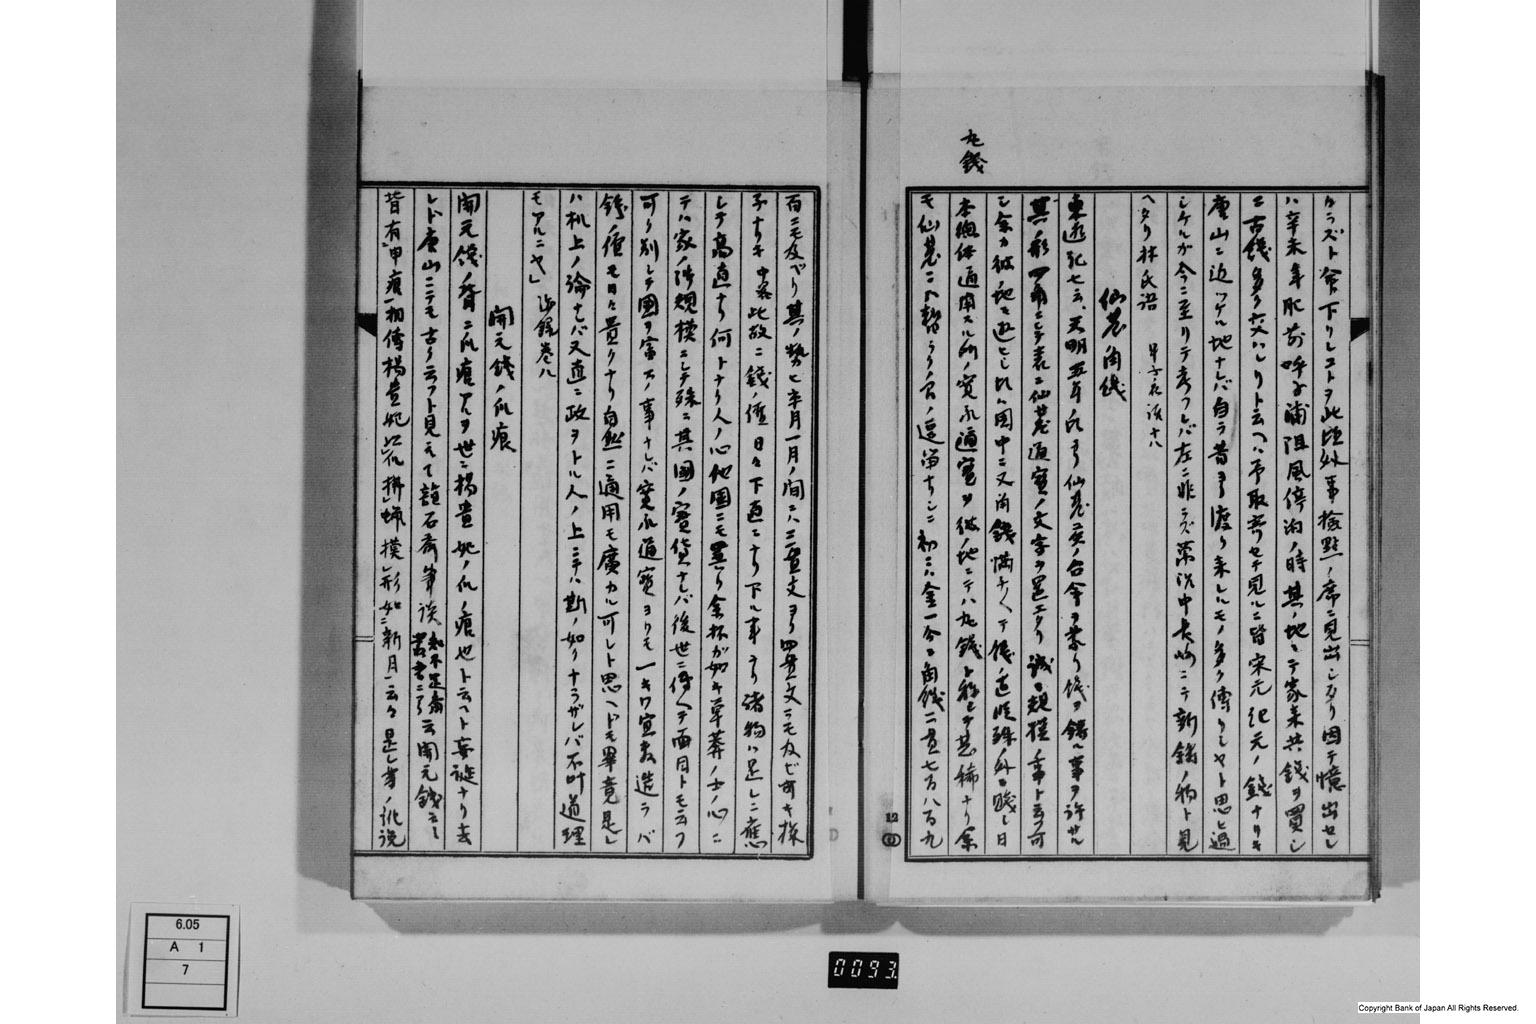 ケラズト命下リシコトヲ此頃外事検點ノ席ニ見出シタリ因テ憶出セシ
ハ辛未年肥前呼子浦阻風停泊ノ時其ノ地ニテ家来共銭ヲ買シ
ニ古銭多ク交ハレリト云ヘハ予取寄セテ見ルニ皆宋元紀元ノ銭ナリキ
唐山ニ近ツケル地ナレバ自ラ昔ヨリ渡リ来レルモノ多ク傳リシヤト思ヒ過
シケルガ今ニ至リテ考フレバ左ニ非ラズ
中長崎ニテ新鋳ノ物ト見
ヘタリ林氏語
仙臺角銭
東遊記七云天明五年ヨリ仙臺
ノ台命ヲ蒙リ銭ヲ鋳ル事ヲ許サル
其ノ形四角ニシテ表ニ仙臺通寶ノ文字ヲ置エタリ誠ニ規模ノ事ト云フ可
シ余カ彼ノ地ニ遊ヒシ比ハ国中ニ又角銭満ナ〳〵テ
殊ノ外ニ賤シ日
丸銭
本惣体通用スル所ノ寛永通寶ヲ彼ノ地ニテハ丸銭ト称シテ甚稀ナリ余
モ仙臺ニハ暫ラクノ間ノ逗留ナラシニ初ニハ金一分ニ角銭二貫七百八百九
百ニモ及ヘリ其ノ勢ヒ半月一月ノ間ニハ三貫文ヨリ四貫文ニモ及ビ可キ様
子ナリキ中畧此故ニ銭ノ價日々下直ニナリ下ル事ヨリ諸物ハ足レニ應
シテ高直ナリ何トナク人ノ心他国ニモ異リ余杯ガ如キ草莽ノ士ノ心ニ
テハ家ノ
規模ニシテ殊ニ其国ノ寶貨ナレバ後世ニ傳ヘテ面目トモ云フ
可ク別シテ国ヲ富スノ事ナレバ寛永通寶ヨリモ一キワ宜敷造ラバ
銭ノ價モ日々貴クナリ自然ニ通用モ廣カル可シト思ヘドモ畢竟是レ
ハ机上ノ論ナレバ又直ニ政ヲトル人ノ上ニテハ斯ノ如クナラザレバ不叶道理
モアルニヤ」 海録巻八
開元銭ノ爪痕
開元銭ノ背ニ爪痕アルヲ世ニ楊貴妃ノ爪ノ痕也ト云ヘト妄誕ナリ去
レド唐山ニテモ古ク云フト見ヘテ
石斎筆談知不足斎叢書ニアリ云開元銭
皆有甲痕一相傳楊貴妃以爪掐蝋模形如新月云々是レ等ノ訛説
12
0093
6.05
A 1
7
Copyright Bank of Japan All Rights Reserved.